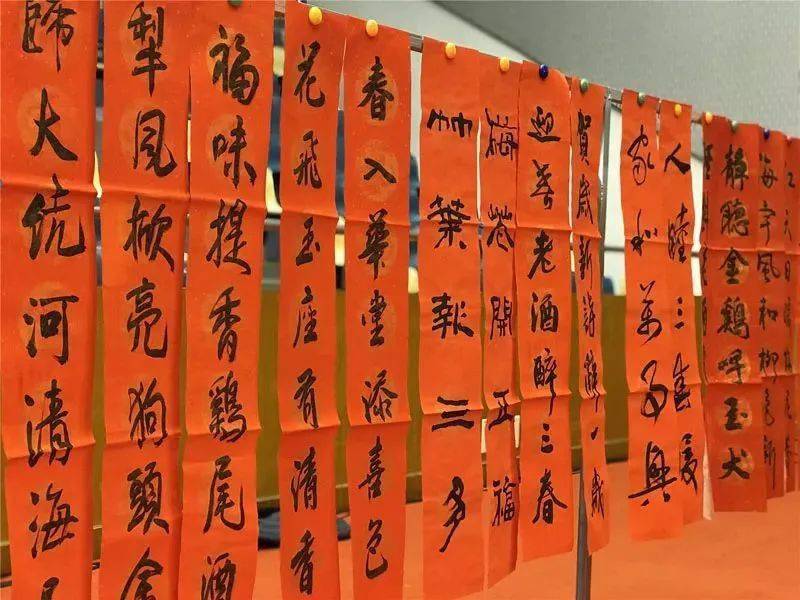 海宇風和柳色新
靜聽金鷄呼玉犬
人睦三春暖
家和萬事興
賀歲新詩辭一歲
迎春老酒醉三春
梅花開五福
竹葉報三多
春入華堂添喜色
花飛玉座有清香
福味提香鷄尾酒
犁風掀亮狗頭金
歸大統河清海